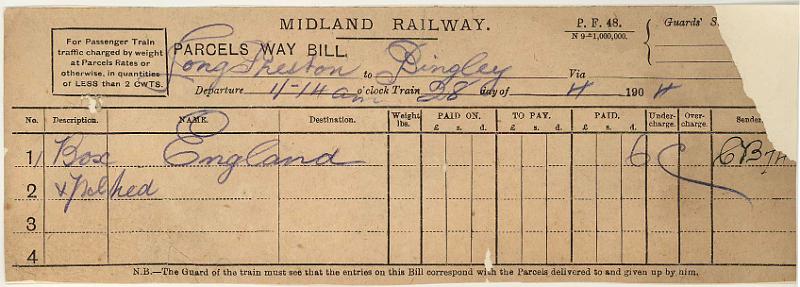 MIDLAND RAILWAY.
P. F. 48.
N 9-1,000,000.
Guards' S
For Passenger Train
traffic charged by weight
at Parcels Rates or
otherwise, in quantities
of LESS than 2 CWTS.
PARCELS WAY BILL,
Long Preston to Bingley Via
Departure 11-14 am o'clock Train 28 day of 4 1904
No. Description. NAME. Destination. Weight lbs. PAID ON. TO PAY. PAID. Under-charge. Over-charge. Sender
£ s. d. £ s. d. £ s. d.
1 Box England 6
2
3
4
N.B.—The Guard of the train must see that the entries on this Bill correspond with the Parcels delivered to and given up by him.